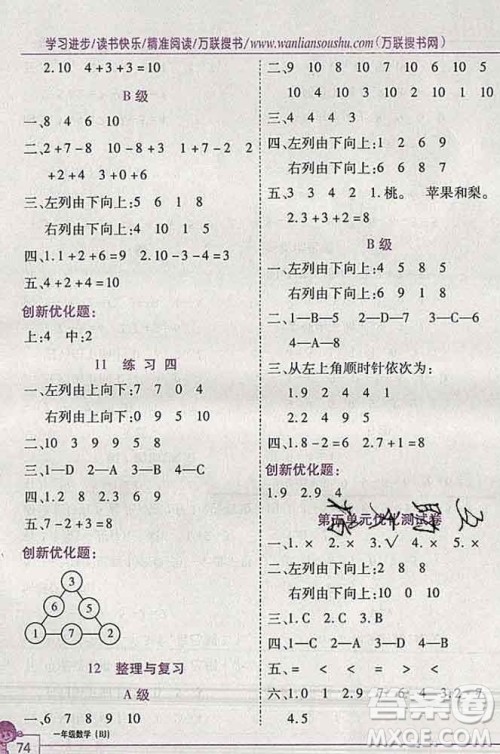 学习进步/读书快乐/精准阅读/万联搜书/www.wanliansoushu.com(万联搜书网)
2.10 4+3+3=10
B 级
一、8 4 6 10
二、2+7-8 10-7-3 8+2+0
4+2-6 3+0+6
三、左列由下向上:5 1 8
右列由下向上:6 9 7
四、1.1+2+6=9 2.10-3-4=3
五、4
创新优化题:
上:4 中:2
11 练 习 四
一、左列由上向下:7 7 0 4
右列由上向下:9 9 9 10
二、10 3 9 9 5 8
三、1—D 2—A 3—B 4—C
四、2 5 8 9 10
五、7-2+3=8
创新优化题:
3
6 5
1 7 2
12 整理与复习
A 级
一、6 7 8 9 10
一年级数学(BJ)
74
二、9 10 8 10 7 5 8 9
10 8 2 3
三、4 6 9 9 8
四、左列由下向上:1 0 2 8
右列由下向上:8 6 7 9
五、3 3 4 2 1.桃。 苹果和梨。
2.3+3+2=8
B 级
一、左列由下向上:4 5 8 5
右列由下向上:6 9 1 8
二、1—B,C 2—D,E 3—F
4—A
三、从左上角顺时针依次为:
2 2 4 9 6
四、1.8-2=6 2.7+1=8
创新优化题:
1.9 2.9 4
1.× 2.× 3.√ 4.× 5.×
二、左列由下向上:0 7 4 8
右列由下向上:10 2 9 8
三、1—B 2—C 3—A 4—D
四、1—C 2—D 3—B 4—A
五、= < = < > <
六、1.2 2.2 3.1 4
4.5